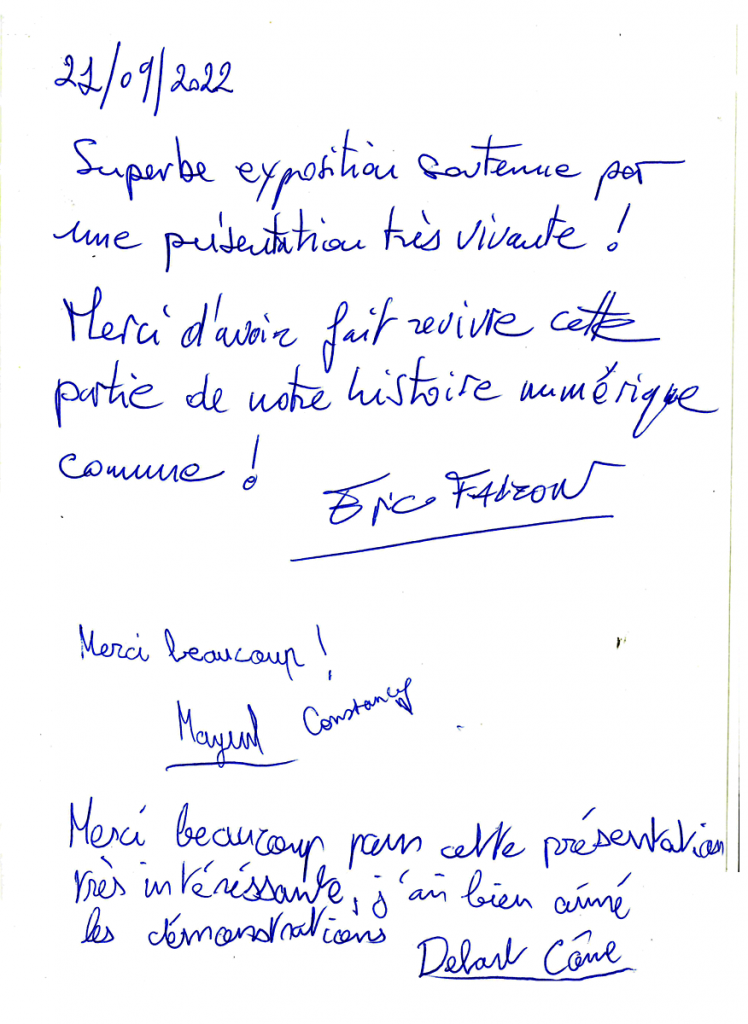 21/09/2022
Superbe exposition soutenue par
une présentation très vivante !
Merci d'avoir fait revivre cette
partie de notre histoire numérique
commune !
Eric FALZON
Merci beaucoup !
Mayeul Constancy
Merci beaucoup pour cette présentation
très intéréssante, j'ai bien aimé
les démonstrations